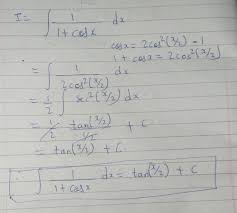 I = ∫ 1/(1+cosx) dx
cosx = 2cos²(x/2) - 1
1 + cosx = 2cos²(x/2)
= ∫ 1/(2cos²(x/2)) dx
= 1/2 ∫ sec²(x/2) dx
= 1/2 tan(x/2)/(1/2) + C
= tan(x/2) + C
∴ ∫ 1/(1+cosx) dx = tan(x/2) + C